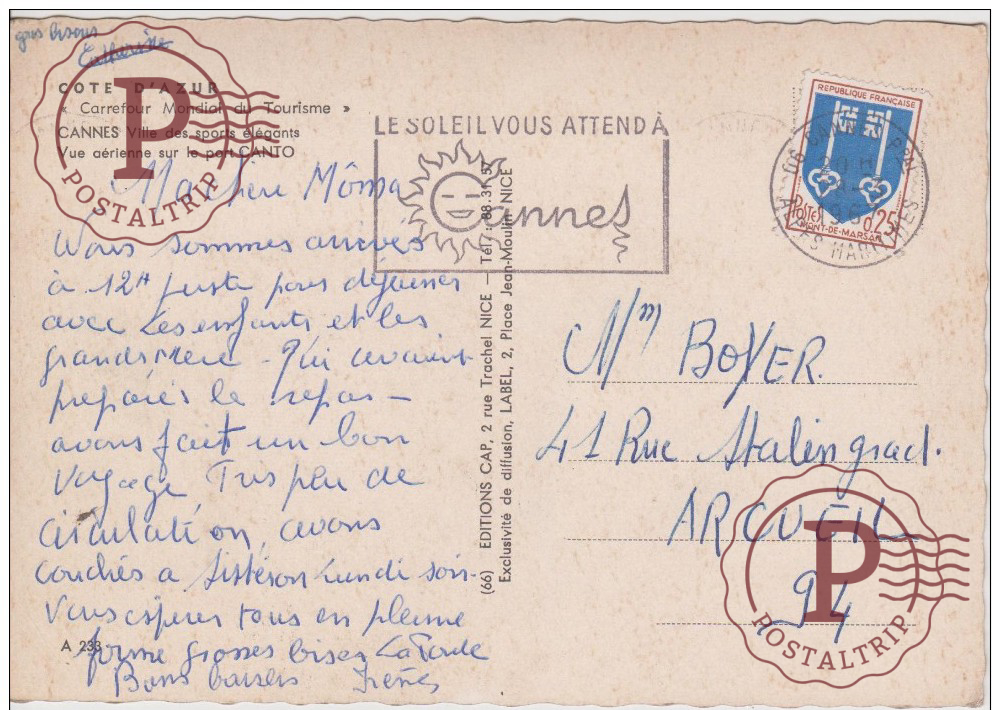 gros bisous
Catherine
COTE D'AZUR
« Carrefour Mondial du Tourisme »
CANNES Ville des sports élégants
Vue aérienne sur le port CANTO
Ma chère Môma
Nous sommes arrivés
à 12H juste pour déjeuner
avec les enfants et les
grands mère - Qui avaient
préparés le repas -
avons fait un bon
voyage Très peu de
circulation, avons
couchés a Sistéron Lundi soir -
Vous espérer tous en pleine
forme grosses bises
Bons baisers Irénée
A 233
(66) EDITIONS CAP, 2 rue Trachel NICE — Tél. : 88.31.57
Exclusivité de diffusion, LABEL, 2, Place Jean-Moulin NICE
LE SOLEIL VOUS ATTEND À
Cannes
REPUBLIQUE FRANÇAISE
POSTES 0,25
MONT-DE-MARSAN
06 CANNES
ALPES MARITIMES
Mm BOYER.
41 Rue Stalingrad.
ARCUEIL
94
P
POSTALTRIP
P
POSTALTRIP